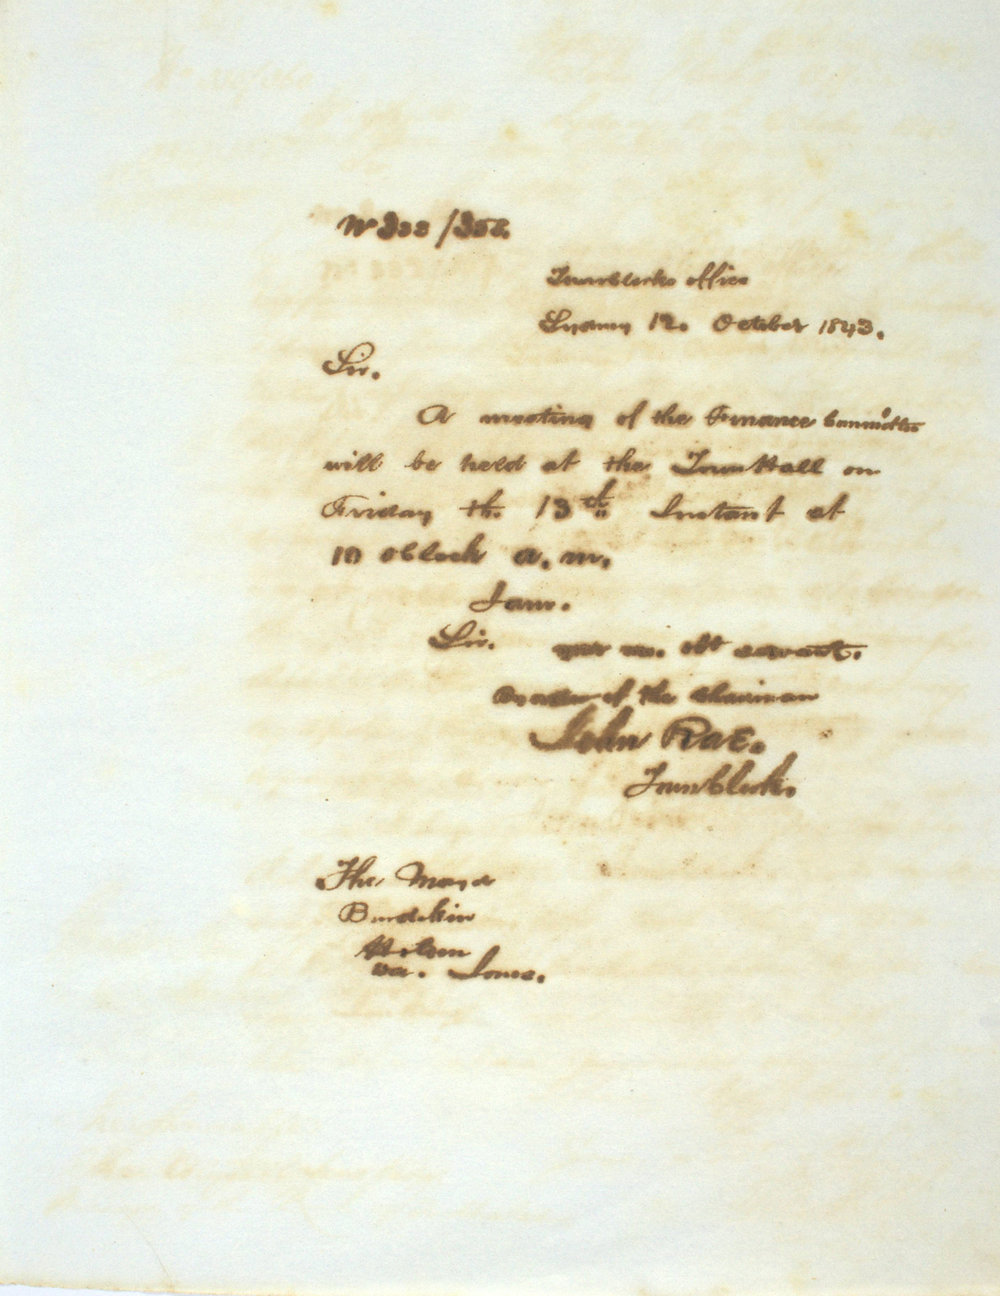 Townclerks office
Sydney 12. October 1843.
Sir.
A meeting of the Finance Committee
will be held at the Town Hall on
Friday the 13th Instant at
10 oClock a. m.
I am.
Sir. your mo. obt servant.
By order of the Chairman
John Rae.
Town Clerk.
The Mayor
Burdekin
Holden
Jones.